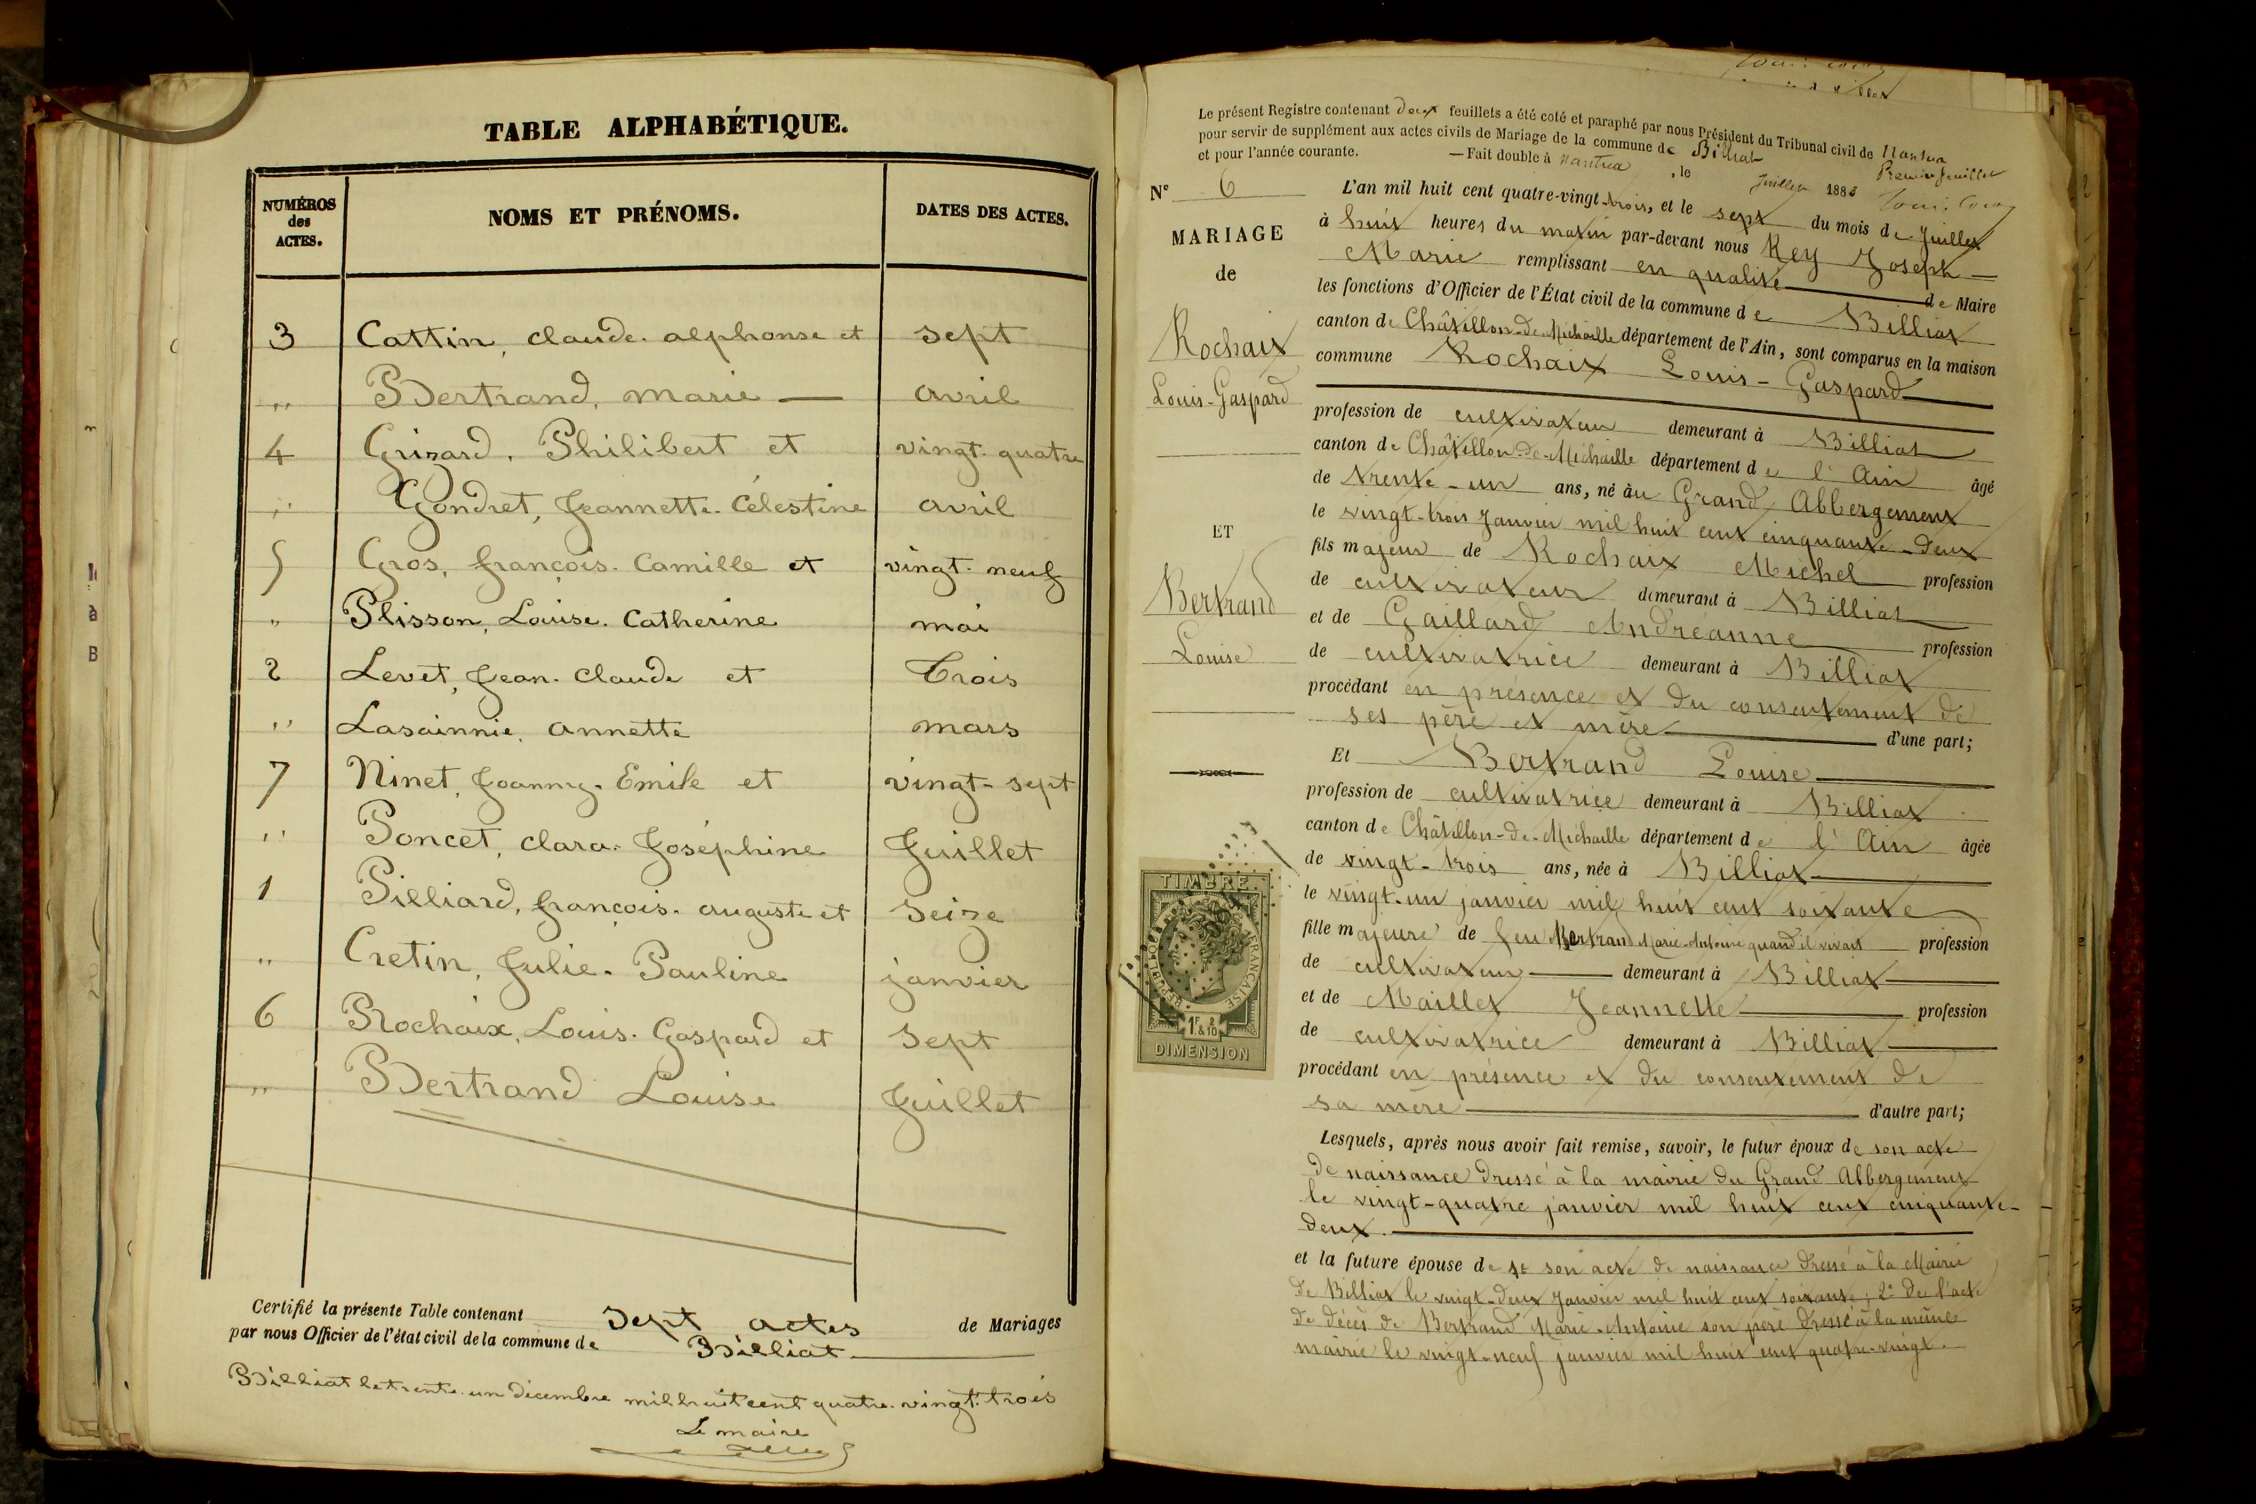 TABLE ALPHABÉTIQUE.
NUMÉROS des ACTES. NOMS ET PRÉNOMS. DATES DES ACTES.
3 Cattin, claude. alphonse et sept
,, Bertrand, marie — avril
4 Grizard, Philibert et vingt-quatre
,, Gondret, Jeannette. Célestine avril
5 Gros, françois. Camille et vingt-neuf
,, Plisson, Louise. Catherine mai
2 Levet, Jean. Claude et Trois
,, Lasainnie, annette mars
7 Ninet, Joanny. Emile et vingt-sept
,, Poncet, clara. Joséphine Juillet
1 Pilliard, françois. auguste et Seize
,, Cretin, Julie. Pauline janvier
6 Rochaix, Louis. Gaspard et Sept
,, Bertrand Louise Juillet
Certifié la présente Table contenant Sept actes de Mariages
par nous Officier de l'état civil de la commune de Billiat
Billiat le trente-un décembre mil huit cent quatre-vingt-trois
Le maire
Le présent Registre contenant deux feuillets a été coté et paraphé par nous Président du Tribunal civil de Nantua
pour servir de supplément aux actes civils de Mariage de la commune de Billiat
et pour l'année courante. — Fait double à Nantua, le Juillet 1883
Premier feuillet
N° 6
MARIAGE
de
Rochaix
Louis-Gaspard
ET
Bertrand
Louise
TIMBRE
REPUBLIQUE FRANÇAISE
1F. 2/10
DIMENSION
L'an mil huit cent quatre-vingt-trois, et le sept du mois de Juillet
à huit heures du matin par-devant nous Rey Joseph
Marie remplissant en qualité de Maire
les fonctions d'Officier de l'État civil de la commune de Billiat
canton de Châtillon-de-Michaille département de l'Ain, sont comparus en la maison
commune Rochaix Louis-Gaspard
profession de cultivateur demeurant à Billiat
canton de Châtillon-de-Michaille département de l'Ain âgé
de trente-un ans, né au Grand Abbergement
le vingt-trois Janvier mil huit cent cinquante-deux
fils majeur de Rochaix Michel profession
de cultivateur demeurant à Billiat
et de Gaillard Andréanne profession
de cultivatrice demeurant à Billiat
procédant en présence et du consentement de
ses père et mère d'une part;
Et Bertrand Louise
profession de cultivatrice demeurant à Billiat
canton de Châtillon-de-Michaille département de l'Ain âgée
de vingt-trois ans, née à Billiat
le vingt-un janvier mil huit cent soixante
fille majeure de feu Bertrand Marie-Antoine quand il vivait profession
de cultivateur demeurant à Billiat
et de Maillet Jeannette profession
de cultivatrice demeurant à Billiat
procédant en présence et du consentement de
sa mère d'autre part;
Lesquels, après nous avoir fait remise, savoir, le futur époux de son acte
de naissance dressé à la mairie du Grand Abbergement
le vingt-quatre janvier mil huit cent cinquante-
deux.
et la future épouse de 1° son acte de naissance dressé à la Mairie
de Billiat le vingt-deux Janvier mil huit cent soixante; 2° de l'acte
de décès de Bertrand Marie-Antoine son père dressé à la même
mairie le vingt-neuf janvier mil huit cent quatre-vingt.